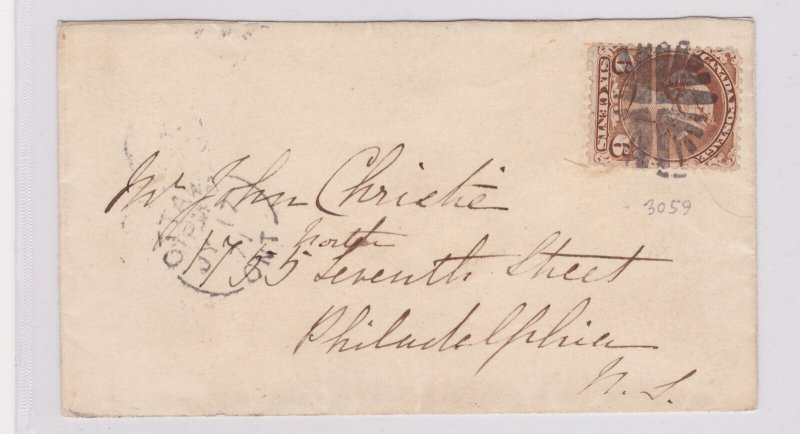 CANADA POSTAGE
SIX CENTS
6 6
3059
OTTAWA
ONT
JY 17
Mr John Christie
North
1735 Seventh Street
Philadelphia
U. S.